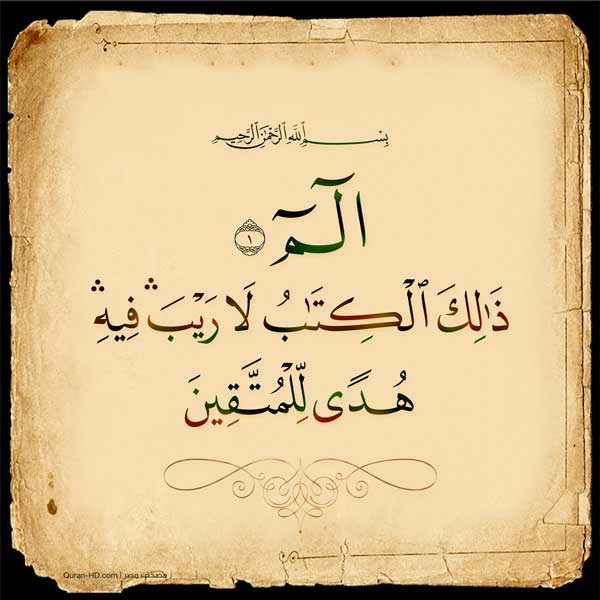 بِسْمِ ٱللَّهِ ٱلرَّحْمَٰنِ ٱلرَّحِيمِ
الٓمٓ ١
ذَٰلِكَ ٱلْكِتَٰبُ لَا رَيْبَ ۛ فِيهِ ۛ
هُدًى لِّلْمُتَّقِينَ
Quran-HD.com | مصحف مصر